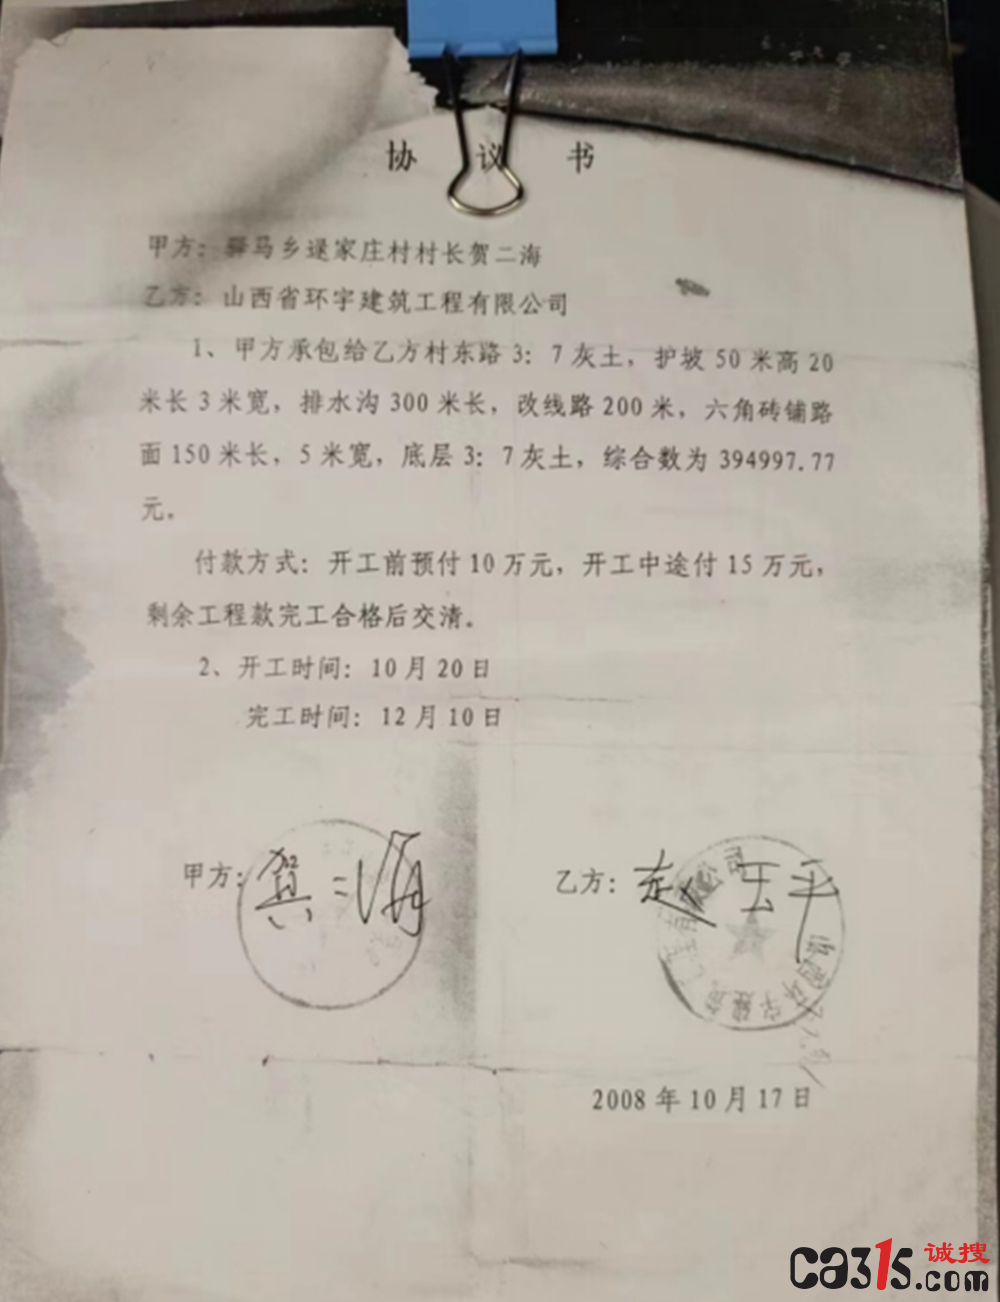 协 议 书
甲方：驿马乡逯家庄村村长贺二海
乙方：山西省环宇建筑工程有限公司
1、甲方承包给乙方村东路 3：7 灰土，护坡 50 米高 20
米长 3 米宽，排水沟 300 米长，改线路 200 米，六角砖铺路
面 150 米长，5 米宽，底层 3：7 灰土，综合数为 394997.77
元。
付款方式：开工前预付 10 万元，开工中途付 15 万元，
剩余工程款完工合格后交清。
2、开工时间：10 月 20 日
完工时间：12 月 10 日
甲方：贺二海
乙方：赵玉平
2008 年 10 月 17 日
诚搜
ca315.com